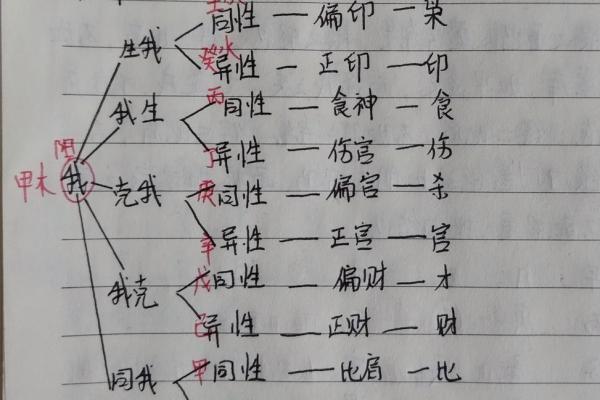 同性 — 偏印 — 枭
生我
癸水 异性 — 正印 — 印
我生
丙 同性 — 食神 — 食
阳
丁 异性 — 伤宫 — 伤
甲木 我
克我
庚 同性 — 偏宫 — 杀
辛 异性 — 正宫 — 宫
我克
戊 同性 — 偏财 — 才
己 异性 — 正财 — 财
同我
甲 同性 — 比肩 — 比